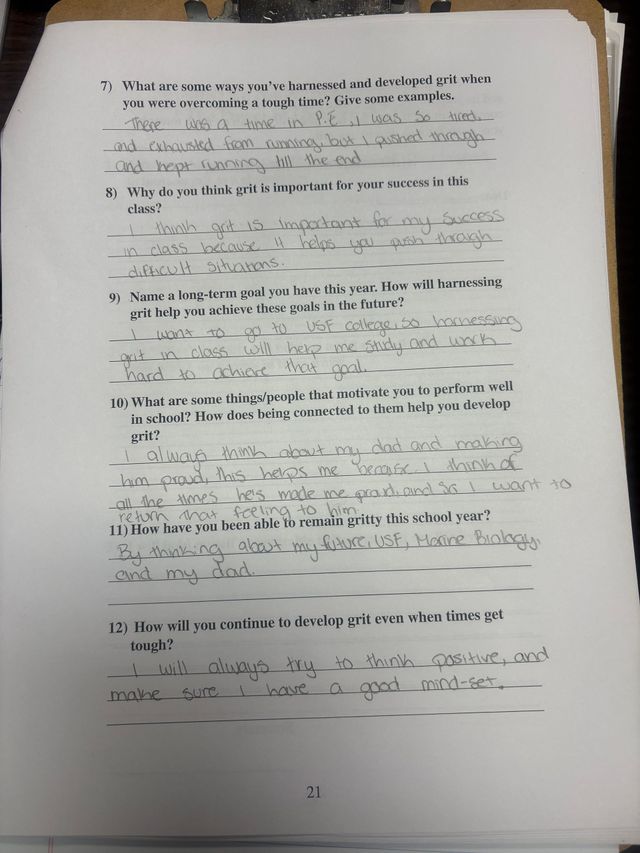 7) What are some ways you've harnessed and developed grit when
you were overcoming a tough time? Give some examples.
There was a time in P.E, I was so tired,
and exhausted from running, but I pushed through
and kept running till the end
8) Why do you think grit is important for your success in this
class?
I think grit is important for my success
in class because it helps you push through
difficult situations.
9) Name a long-term goal you have this year. How will harnessing
grit help you achieve these goals in the future?
I want to go to USF college, so harnessing
grit in class will help me study and work
hard to achieve that goal.
10) What are some things/people that motivate you to perform well
in school? How does being connected to them help you develop
grit?
I always think about my dad and making
him proud, this helps me because I think of
all the times he's made me proud, and so I want to
return that feeling to him.
11) How have you been able to remain gritty this school year?
By thinking about my future, USF, Marine Biology,
and my dad.
12) How will you continue to develop grit even when times get
tough?
I will always try to think positive, and
make sure I have a good mind-set.
21